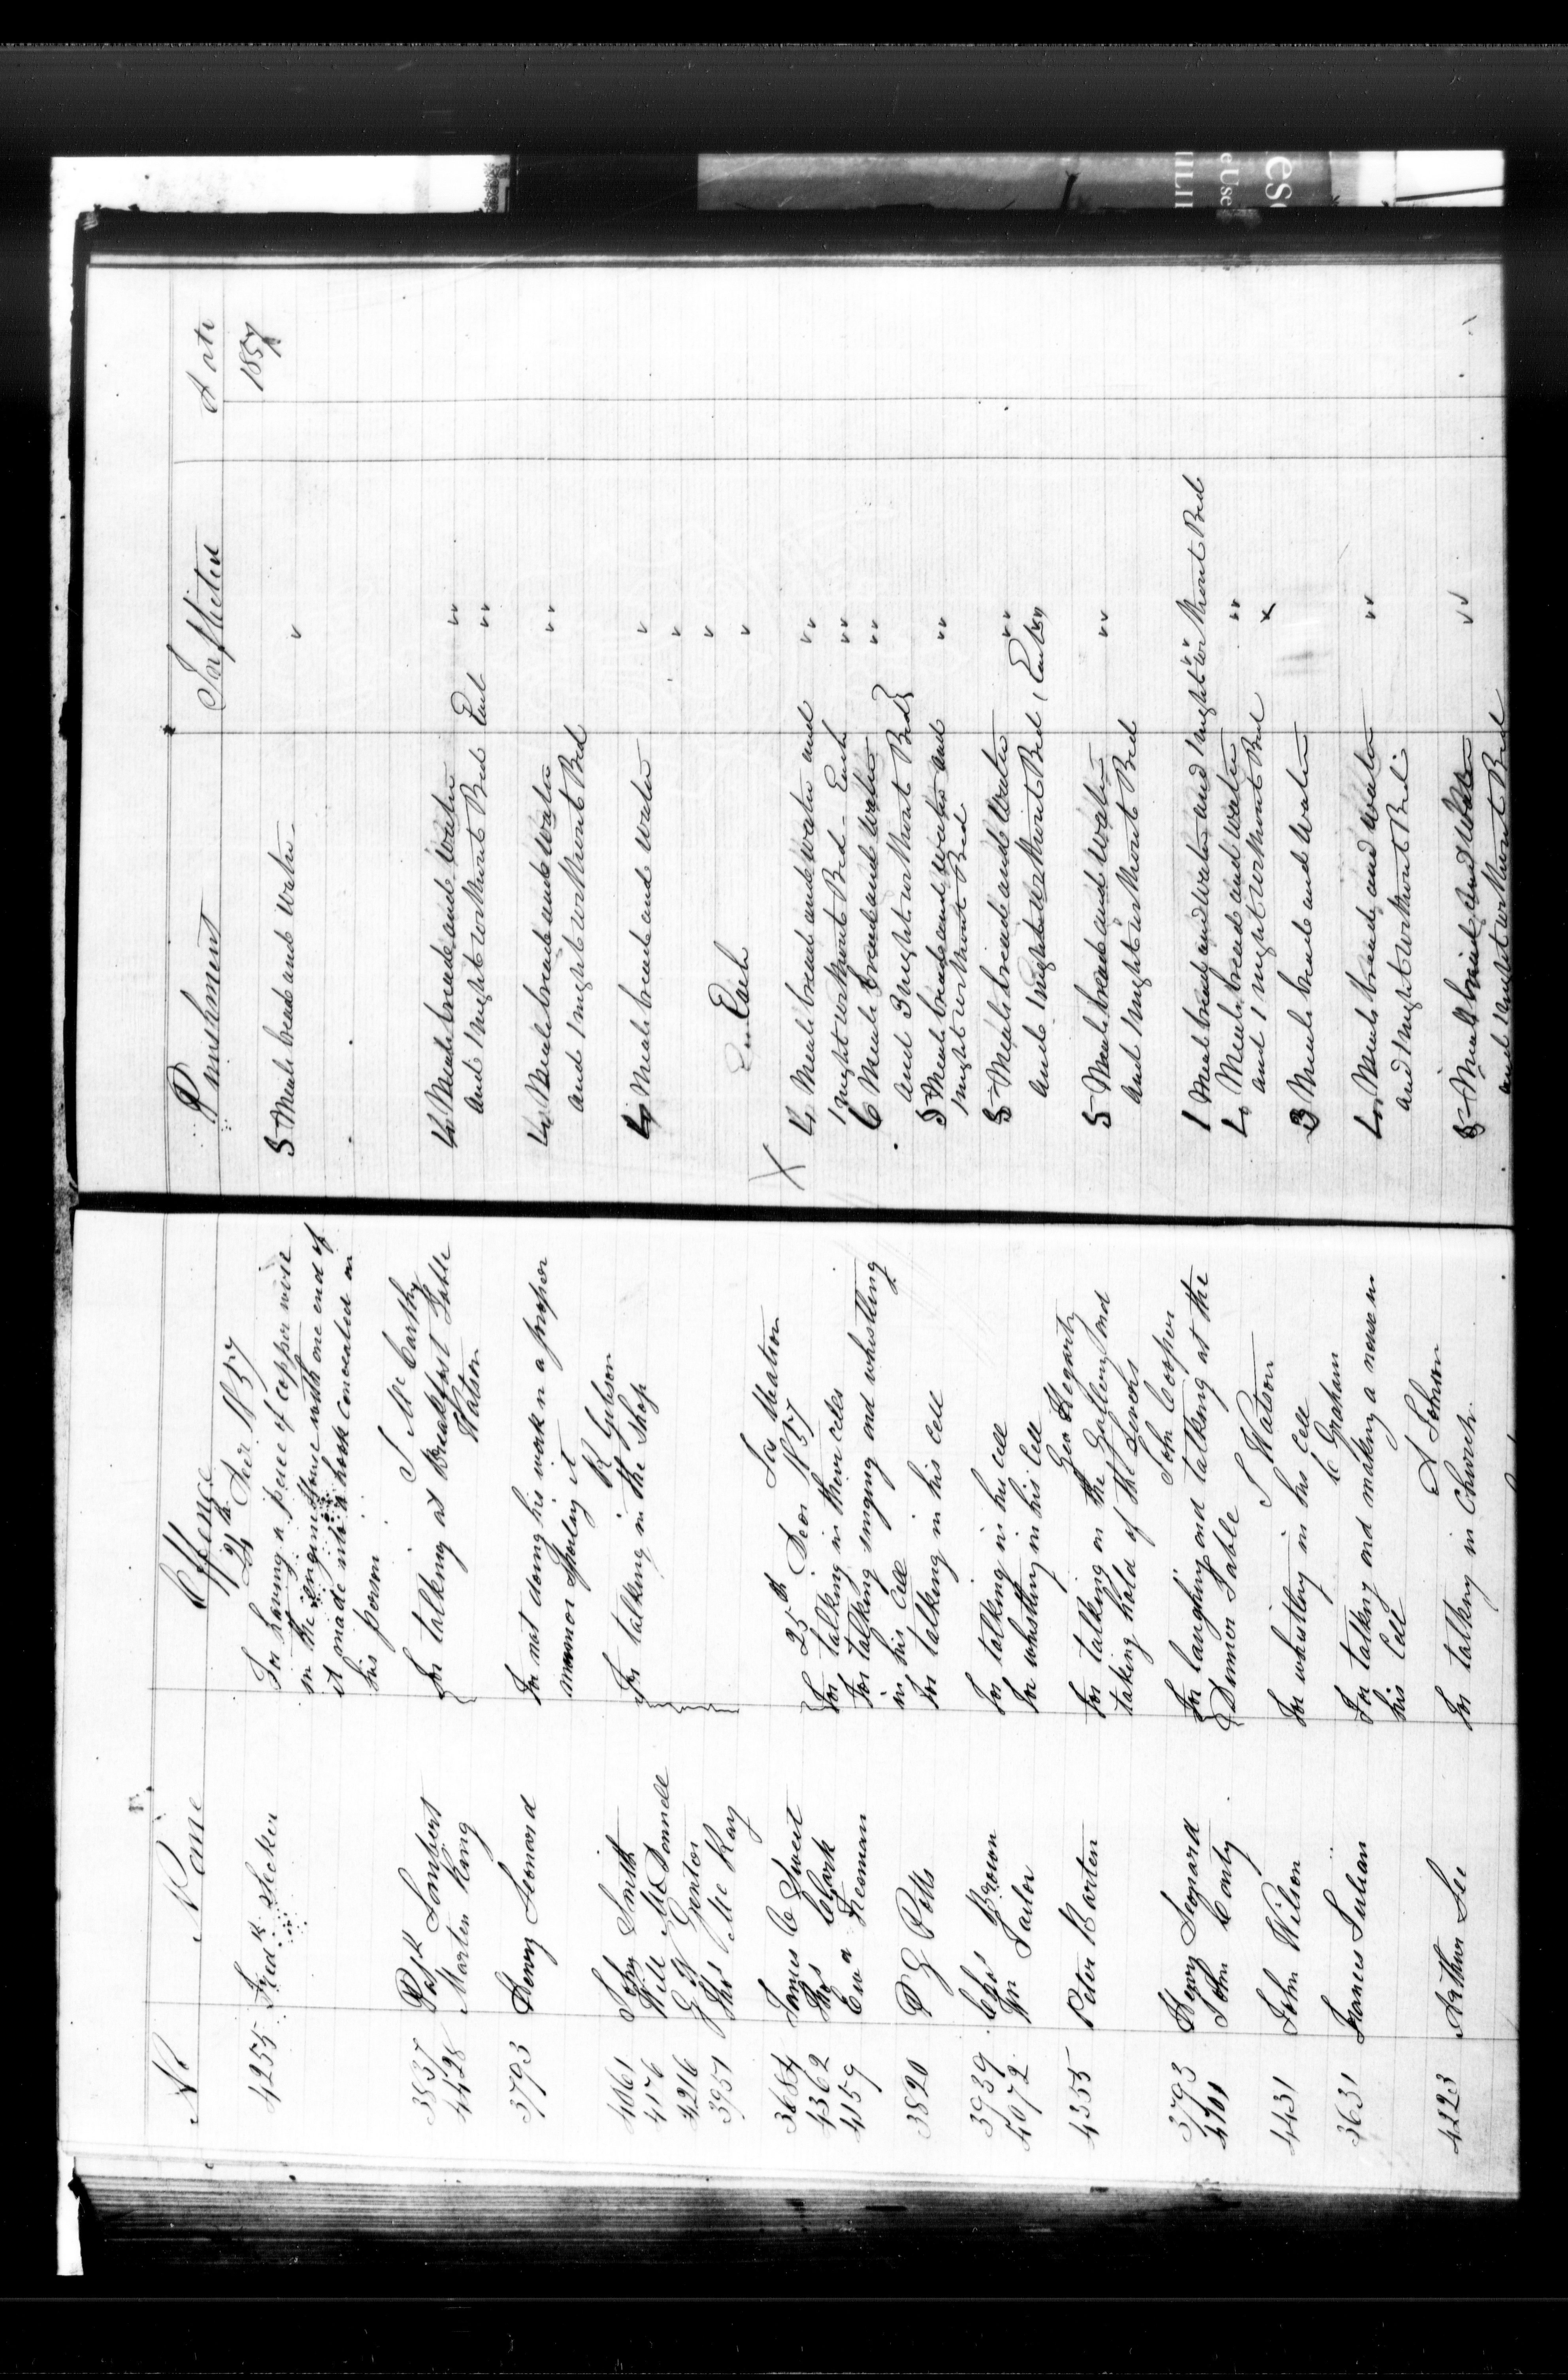 No Name Offence Punishment Inflicted Date
24th Decr 1857 1857
4255 Fredk Decker For having a piece of copper wire 5 Meals bread and Water "
in the engine House with one end of
it made into a hook concealed on
his person
J McCarthy
3837 Patk Lambert For talking at Breakfast Table 4 Meals bread and Water " "
4428 Marten King Watson and 1 night without Bed Each " "
3793 Henry Leonard For not doing his work in a proper 4 Meals bread and Water " "
manner Spoiling it and 1 night without Bed
R Gibson
4061 John Smith For talking in the Shop 4 Meals bread and Water "
4176 Will McDonnell "
4216 G W Genton "
3951 Thos McKay Each "
Jas Matson
25th Decr 1857
3684 James C Sweet For talking in their cells 4 Meals bread and Water and " "
4362 Thos Clark For talking singing and whistling 1 night without Bed - Each " "
4159 Ewn Freeman in his Cell 6 Meals bread and Water " "
and 3 night without Bed
3820 P G Potts For talking in his cell 5 Meals bread and Water and " "
1 night without Bed
3939 Chs Brown For talking in his cell 5 Meals bread and Water " "
4072 Wm Tailor For whistling in his Cell and 1 night without Bed (Each) " "
Geo Hegarty
4355 Peter Barten For talking on the Gallery and 5 Meals bread and Water " "
taking hold of the Levers and 1 night without Bed
John Cooper
3793 Henry Leonard For laughing and talking at the 1 Meal bread and Water and 1 night without Bed " "
4701 John Conty Dinner Table 4 Meals bread and Water " "
J Watson and 1 night without Bed x
4431 John Wilson For whistling in his Cell 3 Meals bread and Water
C Graham
3631 Frances Julian For talking and making a noise in 4 Meals bread and Water " "
his Cell and 1 night without Bed
A Johnson
4223 Arthur Lee For talking in Church 5 Meals bread and Water " "
and 1 night without Bed